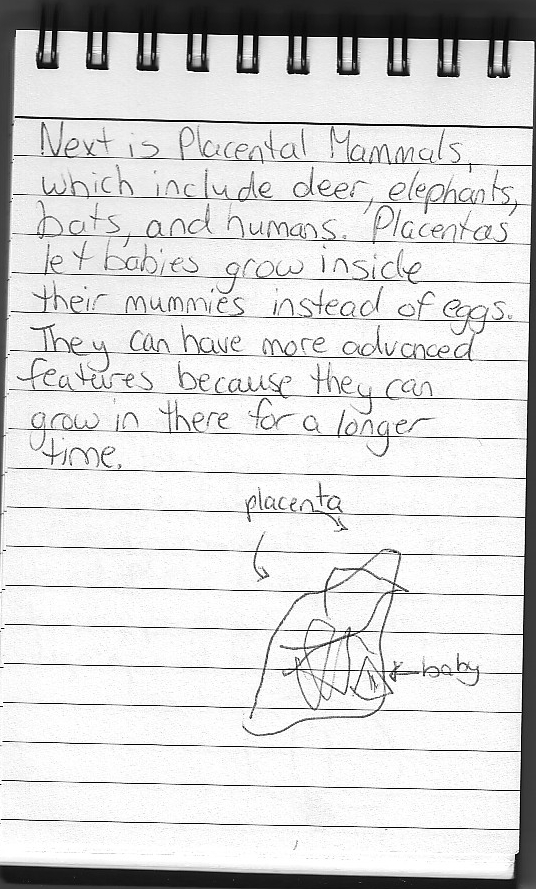 Next is Placental Mammals,
which include deer, elephants,
bats, and humans. Placentas
let babies grow inside
their mummies instead of eggs.
They can have more advanced
features because they can
grow in there for a longer
time.
placenta
baby